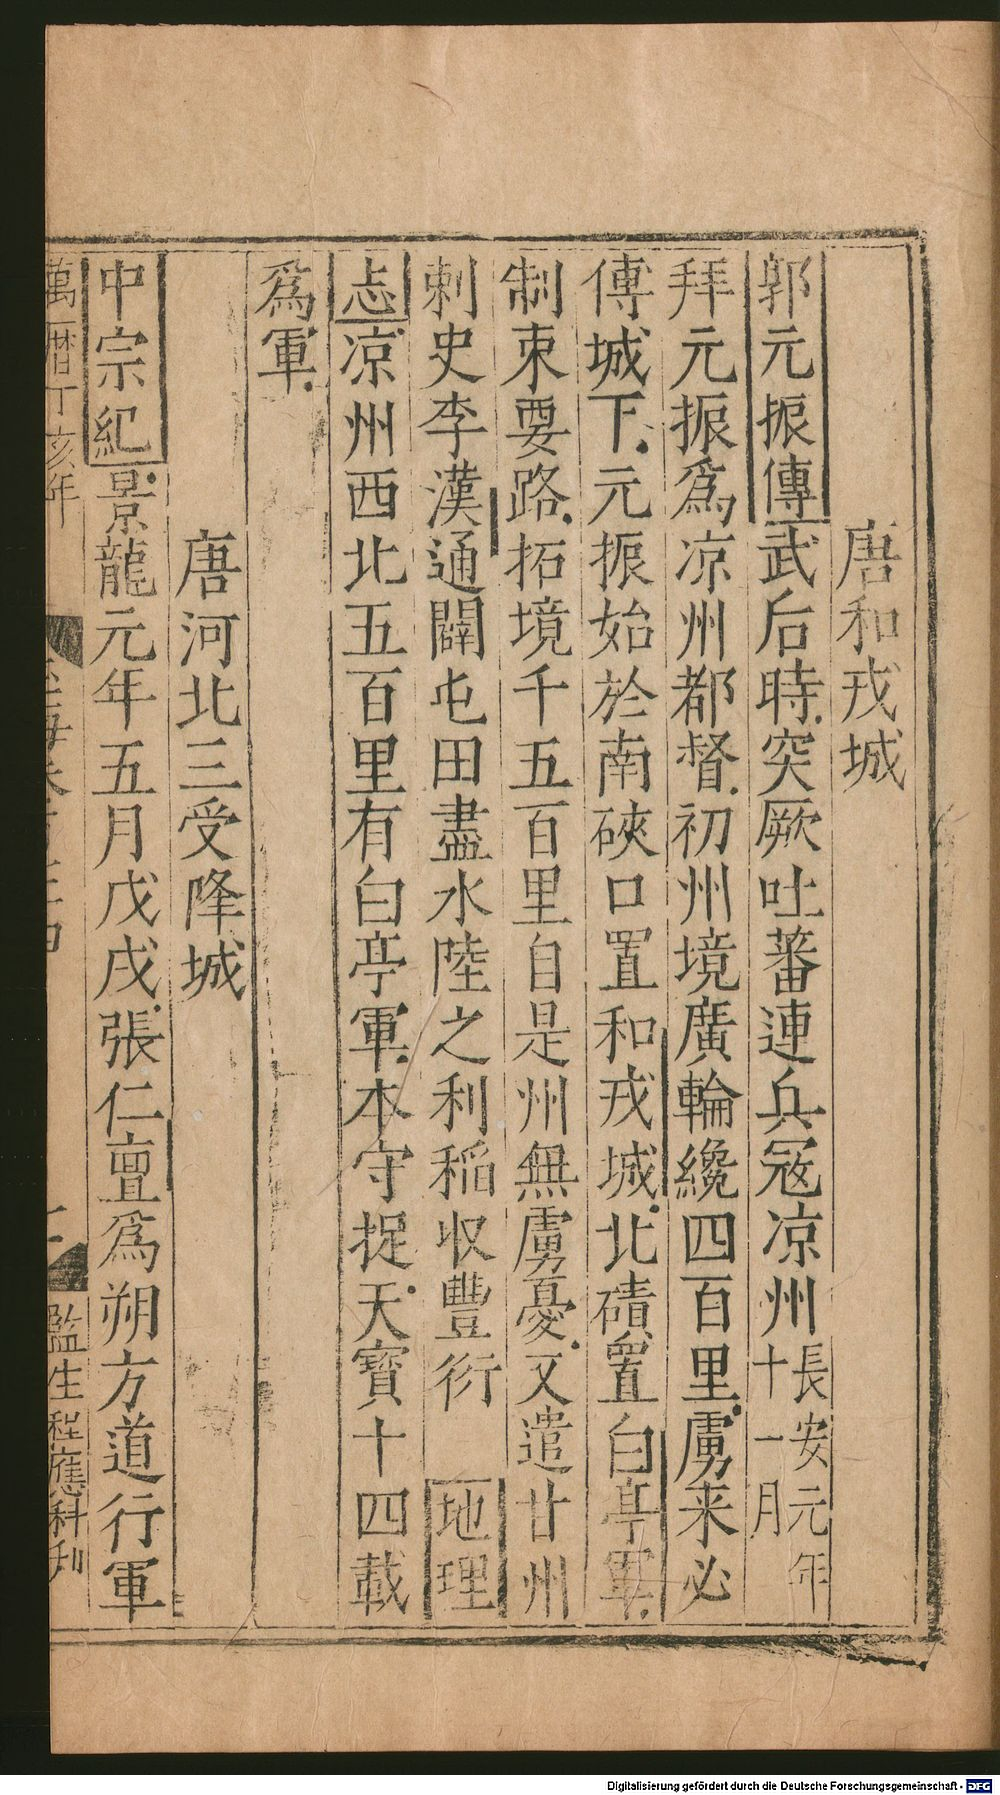 唐和戎城
郭元振傳武后時突厥吐蕃連兵冦涼州長安元年十一月
拜元振爲涼州都督初州境廣輪纔四百里虜來必
傅城下元振始於南硤口置和戎城北磧置白亭軍
制束要路拓境千五百里自是州無虜憂又遣甘州
刺史李漢通闢屯田盡水陸之利稻收豐衍 地理
志涼州西北五百里有白亭軍本守捉天寶十四載
爲軍
唐河北三受降城
中宗紀景龍元年五月戊戌張仁亶爲朔方道行軍
萬曆丁亥年
監生程應科刊
Digitalisierung gefördert durch die Deutsche Forschungsgemeinschaft - DFG